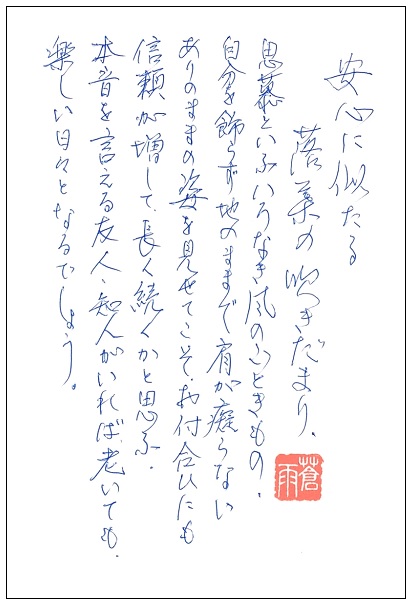 安心に似たる
落葉の吹きだまり。
思慕といふいろなき風のごときもの。
自分を飾らず地のままで肩が凝らない
ありのままの姿を見せてこそ、お付合ひにも
信頼が増して、長く続くかと思ふ。
本音を言える友人、知人がいれば、老いても、
楽しい日々となるでしょう。
蒼雨